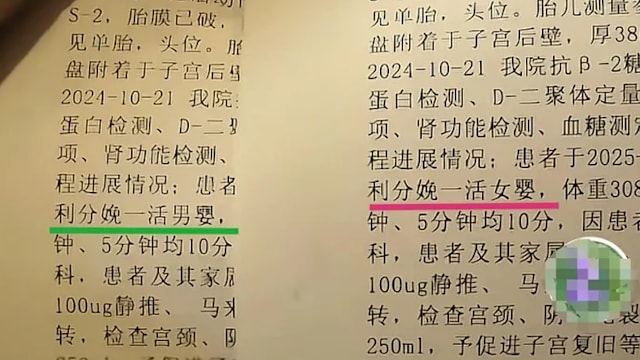 S-2, 胎膜已破,
见单胎, 头位。
盘附着于子宫后壁
2024-10-21 我院
蛋白检测、D-二
项、肾功能检测、
程进展情况; 患者
利分娩一活男婴,
钟、5分钟均10分
科, 患者及其家属
100ug静推、 马来
转, 检查宫颈、阴
250ml, 予促进子
见单胎, 头位。胎儿测量
盘附着于子宫后壁, 厚38
2024-10-21 我院抗β-2糖
蛋白检测、D-二聚体定量
项、肾功能检测、血糖测定
程进展情况; 患者于2025-
利分娩一活女婴, 体重308
钟、5分钟均10分, 因患者
科, 患者及其家属
100ug静推、 马
转, 检查宫颈、阴 裂
250ml, 予促进子宫复旧等